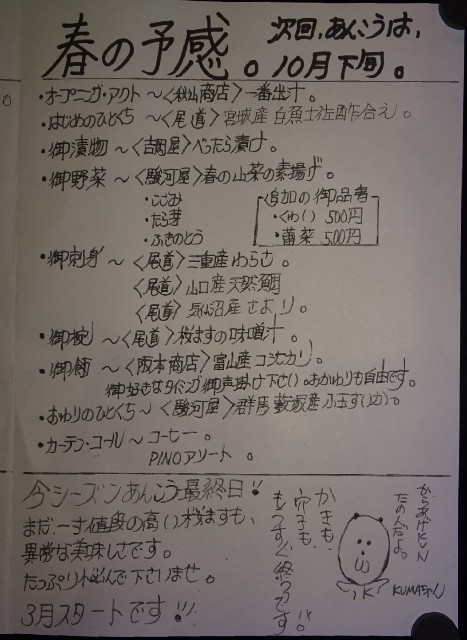 春の予感。
次回、あんこうは、
10月下旬。
・オープニング・アクト〜〈秋山商店〉一番出汁。
・はじめのひとくち〜〈尾道〉宮城産白魚土佐酢合え。
・御漬物〜〈吉岡屋〉べったら漬け。
・御野菜〜〈駿河屋〉春の山菜の素揚げ。
・こごみ
・たら芽
・ふきのとう
追加の御品書
・くわい 500円
・蕾菜 500円
・御刺身〜〈尾道〉三重産わらさ。
〈尾道〉山口産天然鯛
〈尾道〉気仙沼産さより。
・御椀〜〈尾道〉桜ますの味噌汁。
・御飯〜〈阪本商店〉富山産コシヒカリ。
御好きなタイミング御声掛け下さい。おかわりも自由です。
・おわりのひとくち〜〈駿河屋〉群馬藪塚産小玉すいか。
・カーテン・コール〜コーヒー。
PINOアソート。
今シーズンあんこう最終日!!
まだ一寸値段の高い桜ますも、
異常な美味しさです。
たっぷり仕込んで下さいませ。
3月スタートです!!!
かきも、
穴子も、
もうすぐ終わるです!!
からあげKUN
たのんだよ。
KUMAちゃん